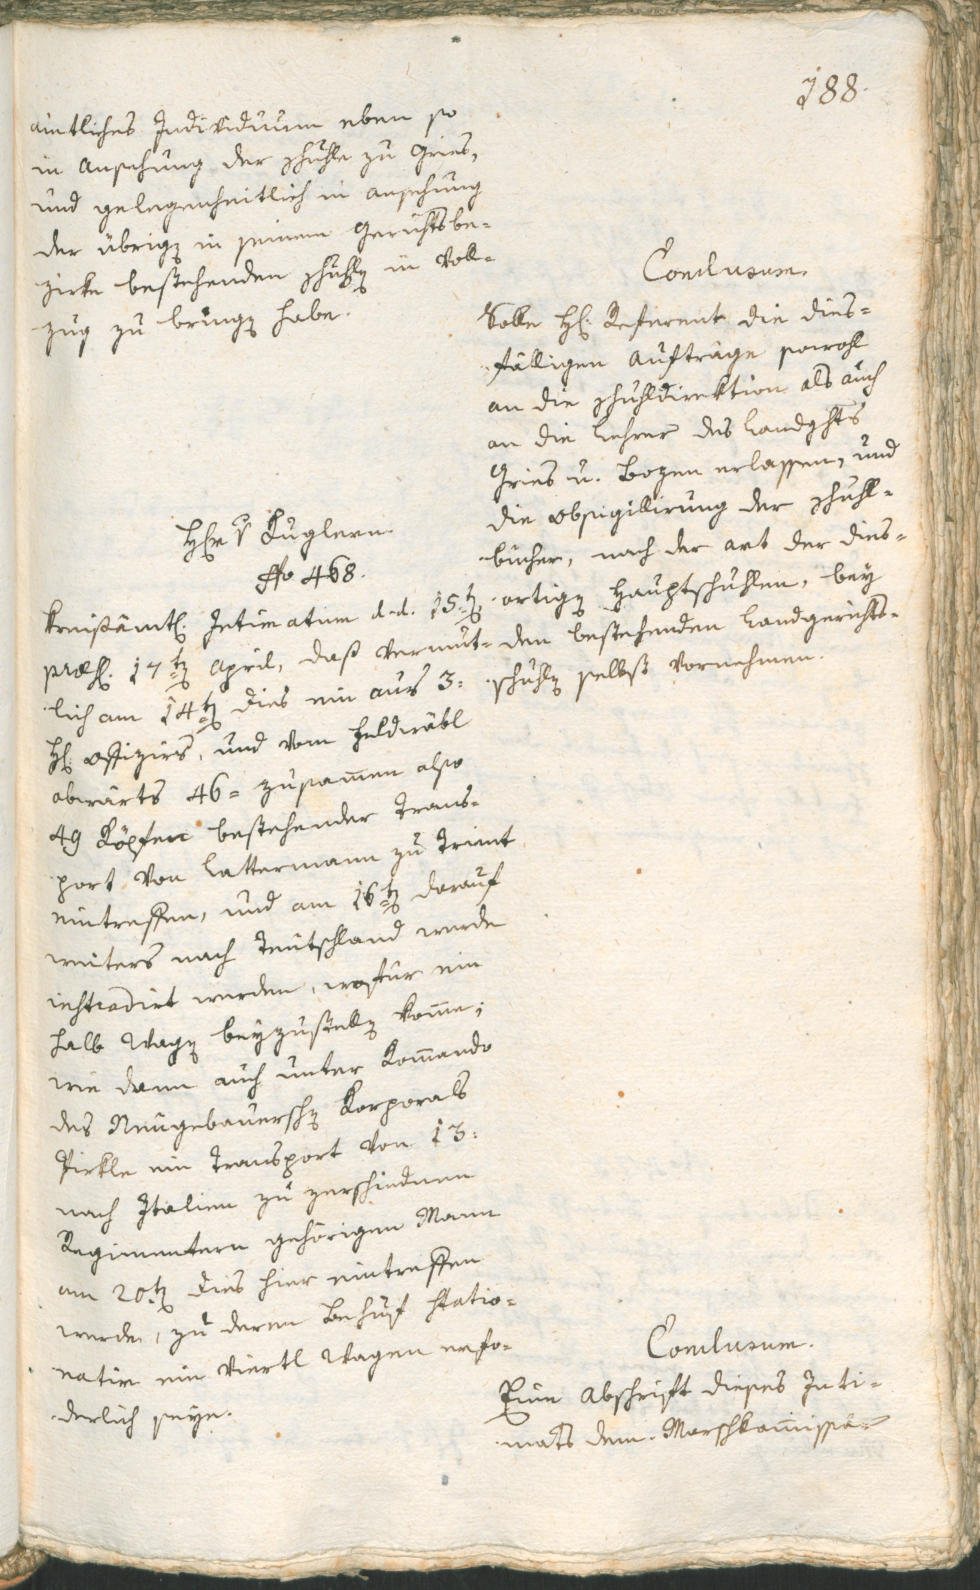 188.
amtliches Individuum eben so
in Ansehung der Schule zu Gries,
und gelegenheitlich in Ansehung
der übrigen in seinem Gerichtsbe=
zirke bestehenden Schulen in Voll=
zug zu bringen habe.
Conclusum.
Solle H: Referent die dies=
fälligen Aufträge sowohl
an die Schuldirektion als auch
an die Lehrer des Landghts
Gries u. Bozen erlassen, und
die Obsigillirung der Schull=
bücher, nach der Art der dies=
ortigen Hauptschulen, bey
den bestehenden Landgerichts=
schulen selbst vornehmen.
Hr v Kuglern.
No 468.
Kreisämtl: Intimatum d.d. 15ten
præs: 17ten April, daß vermut=
lich am 14ten dies ein aus 3=
H: Offiziers, und vom Feldwäbl
abwärts 46= zusammen also
49 Köpfen bestehender Trans=
port von Lattermann zu Trient
eintreffen, und am 16ten darauf
weiters nach Teutschland werde
instradirt werden, wofür ein
halb Wagen beyzustellen komme;
wie dann auch unter Kommando
des Neugebauerschen Korporals
Pirkle ein Transport von 13=
nach Italien zu zerschiednen
Regimentern gehörigen Mann
am 20ten dies hier eintreffen
werde, zu deren Behuf statio=
natim ein Viertl Wagen erfo=
derlich seye.
Conclusum.
Eine Abschrift dieses Inti=
mats dem Marschkommissär